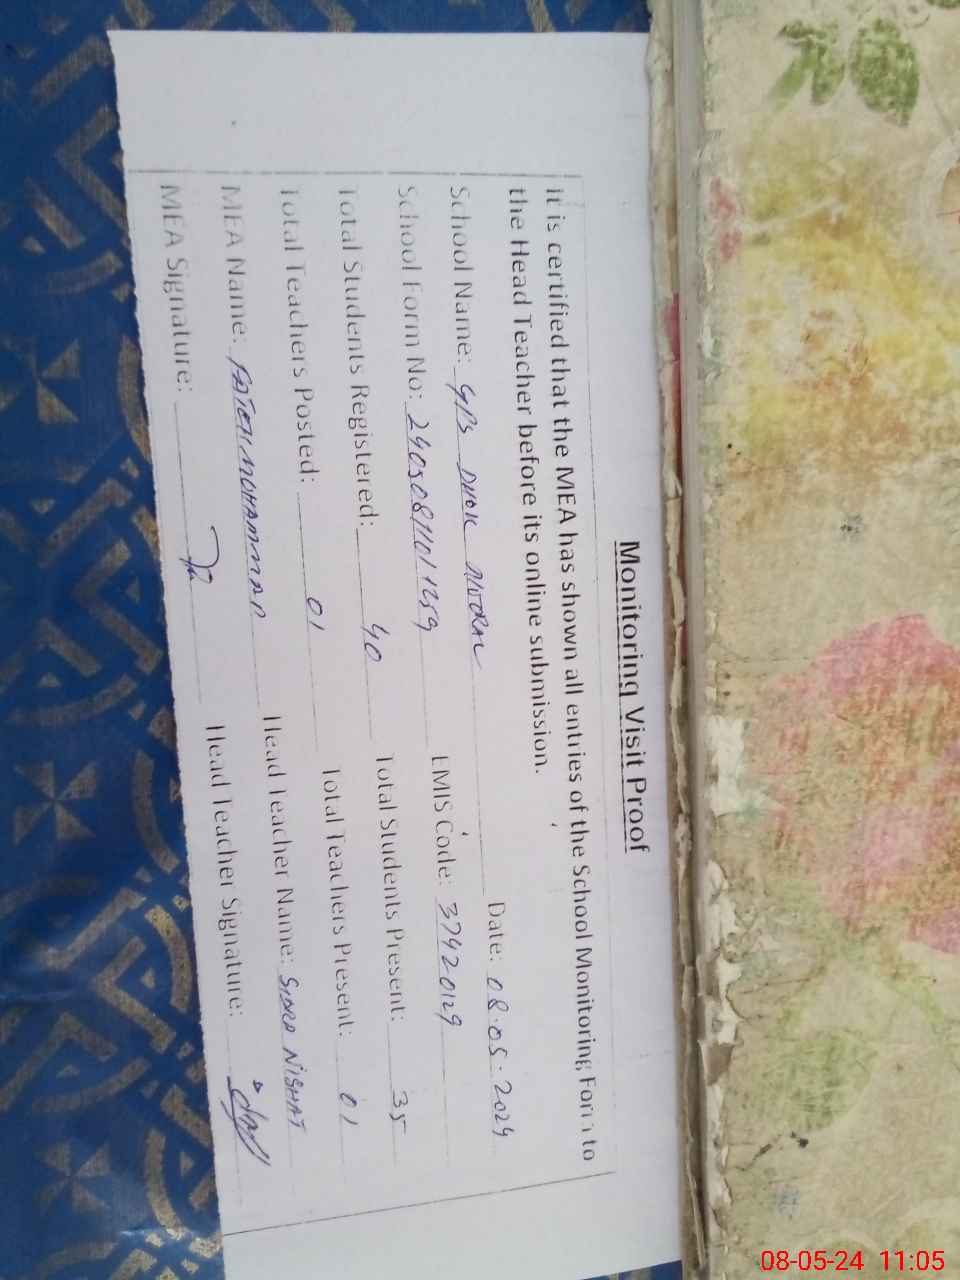 Monitoring Visit Proof
It is certified that the MEA has shown all entries of the School Monitoring Form to
the Head Teacher before its online submission.
School Name: GPS DHOK Date: 08.05.2024
School Form No: EMIS Code: 37420129
Total Students Registered: 40 Total Students Present: 35
Total Teachers Posted: 01 Total Teachers Present: 01
MEA Name: FATEH MUHAMMAD Head Teacher Name: SIDRA NISHAT
MEA Signature: Head Teacher Signature:
08-05-24 11:05